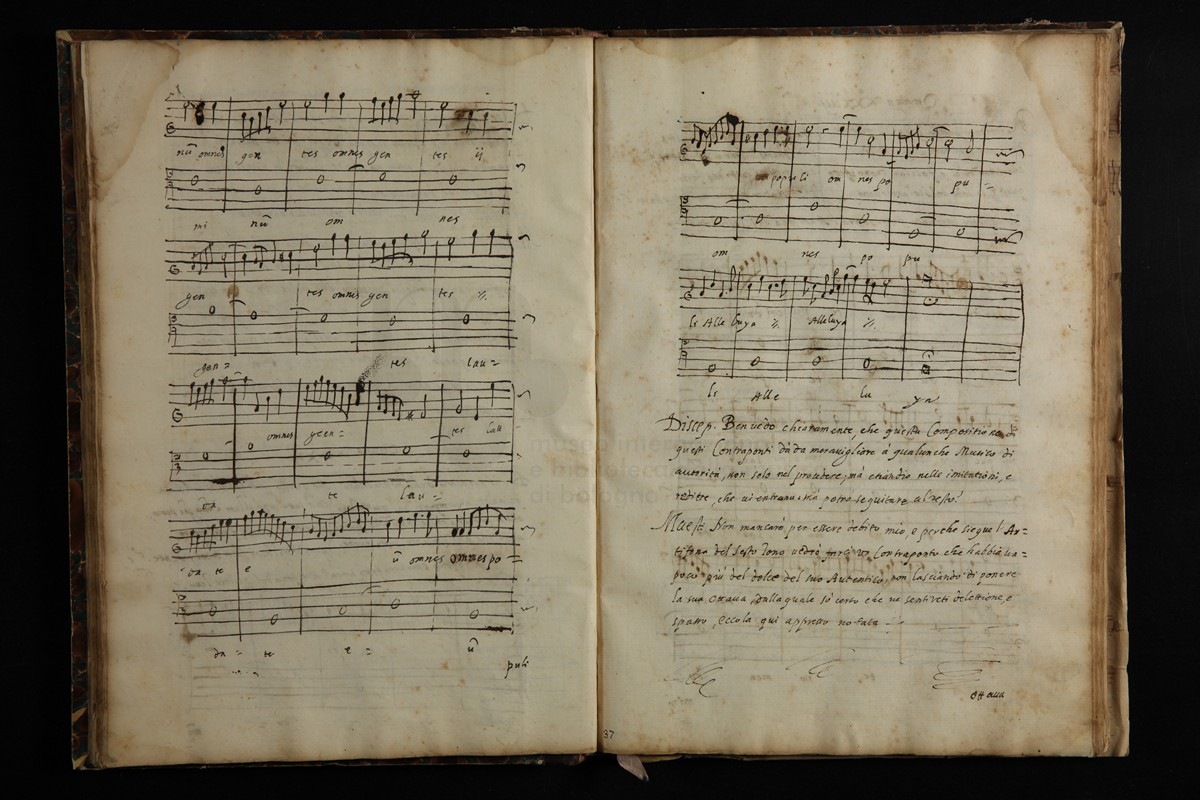 nũ omnes gen tes omnes gen tes ij
mi nũ om nes
gen tes omnes gen tes
gen= tes lau=
omnes geen= tes lau
te lau=
da te e ũ omnes omnes po=
da= te e= ũ
puli
populi omnes po pu=
om nes po pu
li Alleluya Alleluya
li Alle lu ya
Discep. Ben vedo chiaramente, che questa Compositione di
questi Contraponti dà da meravigliare à qualunche Musico di
autorità, non solo nel procedere, mà etiandio nelle imitationi, e
redite, che vi entrano, mà potrà seguitare al resto.
Maest. Non mancarò per essere debito mio, e perche siegue l'An=
tifona del sesto Tono vedrò farci un Contraponto che habbia un
poco più del dolce del suo Autentico, non lasciando di ponere
la sua ottava dalla quale sò certo che ne sentireti delettione, e
spasso, eccola qui appresso notata
ottava
37
museo internazionale
e biblioteca
di bologna